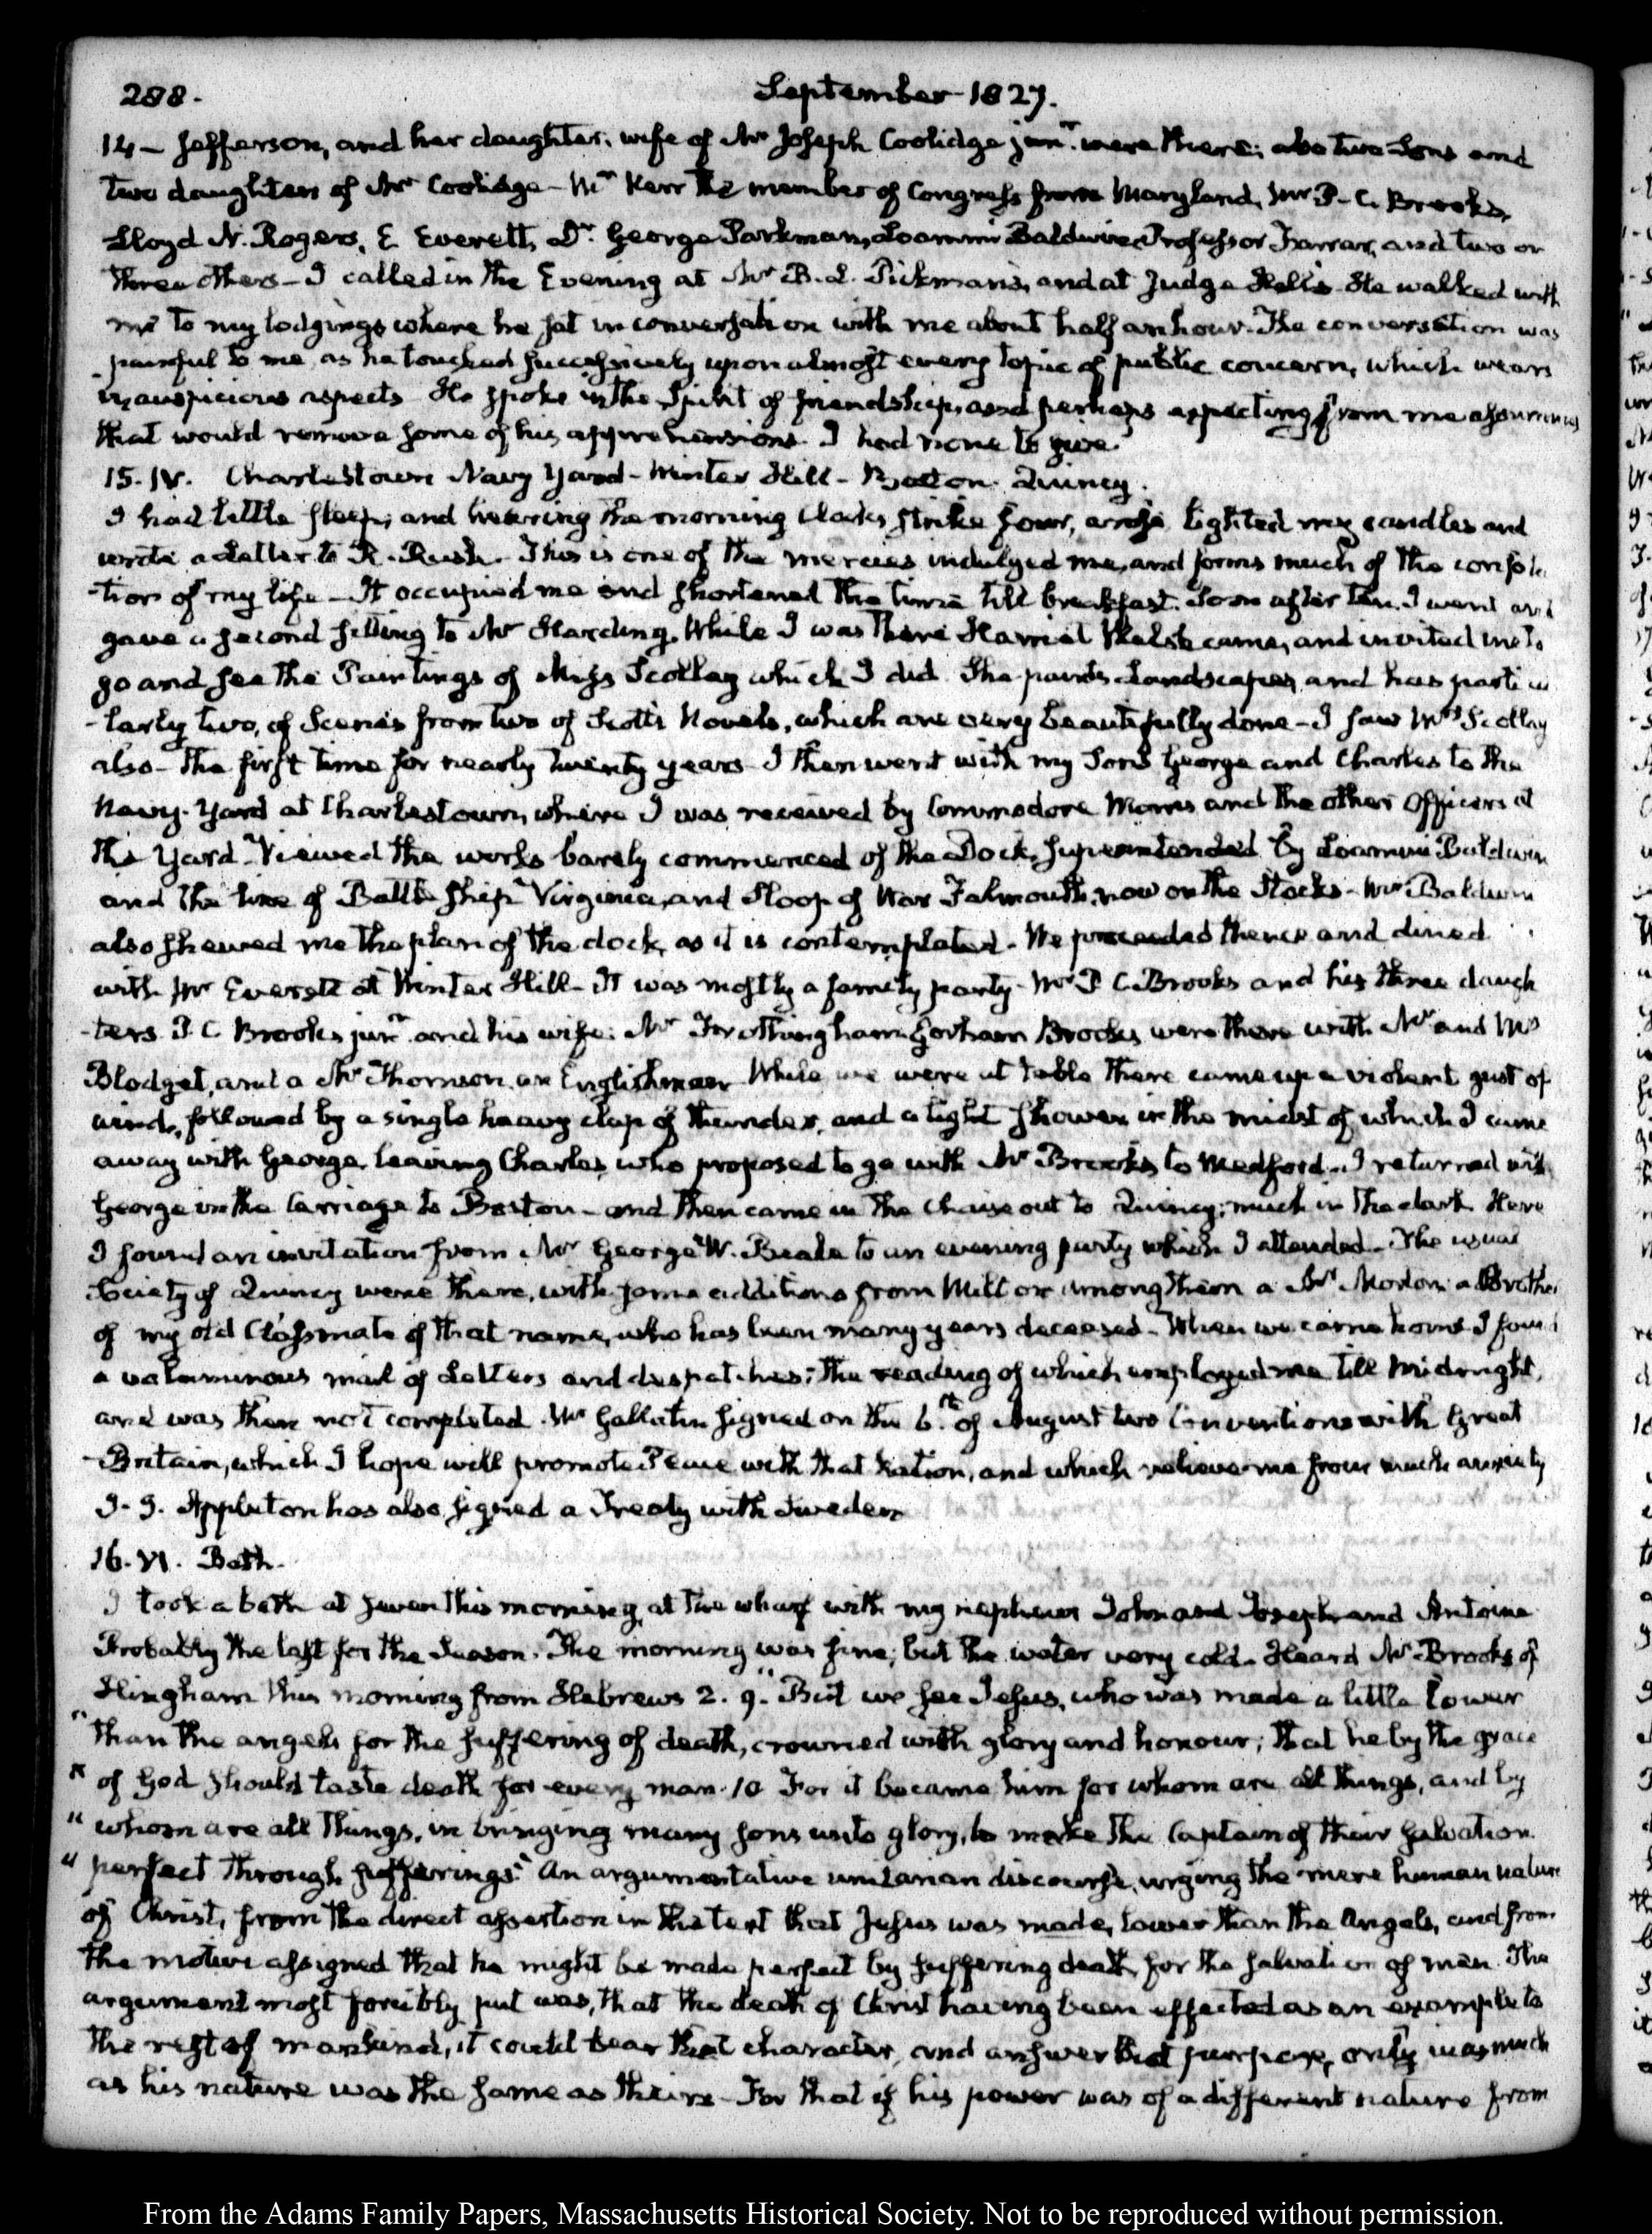 288.
September 1827.
14– Jefferson, and her daughter, wife of Mr Joseph Coolidge junr. were there; also two Sons and
two daughters of Mr Coolidge– Mr Kerr the member of Congress from Maryland, Mr P. C. Brooks,
Lloyd N. Rogers, E Everett, Dr. George Parkman, Loammi Baldwin, Professor Farrar, and two or
three others– I called in the Evening at Mr B. L. Pickman's, and at Judge Hall's. He walked with
me to my lodgings where he sat in conversation with me about half an hour. The conversation was
painful to me, as he touched successively upon almost every topic of public concern, which wears
inauspicious aspects. He spoke in the Spirit of friendship, and perhaps expecting from me assurances
that would remove some of his apprehensions. I had none to give.
15. IV. Charlestown Navy Yard– Winter Hill– Boston. Quincy.
I had little sleep; and hearing the morning Clocks strike four, arose lighted my candles and
wrote a Letter to R. Rush. This is one of the mercies indulged me, and forms much of the consola
-tion of my life– It occupied me and shortened the time till breakfast. Soon after ten I went and
gave a second sitting to Mr Harding. While I was there Harriet Welsh came, and invited me to
go and see the Paintings of Miss Scollay which I did. She paints Landscapes, and has particu
-larly two, of Scenes from two of Scott's Novels, which are very beautifully done– I saw Mrs Scollay
also– the first time for nearly twenty years– I then went with my Sons George and Charles to the
Navy-Yard at Charlestown, where I was received by Commodore Morris and the other Officers at
the Yard– Viewed the works barely commenced of the Dock, superintended by Loammi Baldwin
and the line of Battle Ship Virginia, and Sloop of War Falmouth, now on the Stocks– Mr Baldwin
also shewed me the plan of the dock, as it is contemplated– We proceeded thence and dined
with Mr Everett at Winter Hill– It was mostly a family party– Mr P C. Brooks and his three daugh
-ters P. C Brooks junr. and his wife. Mr Frothingham Gorham Brooks were there with Mr and Mrs
Blodget, and a Mr Thomson an Englishman. While we were at table there came up a violent gust of
wind, followed by a single heavy clap of thunder, and a light shower in the midst of which I came
away with George, leaving Charles, who proposed to go with Mr Brooks to Medford– I returned with
George in the Carriage to Boston– and then came in the Chaise out to Quincy; much in the dark. Here
I found an invitation from Mr George W. Beale to an evening party which I attended– The usual
Society of Quincy were there, with some additions from Milton among them a Mr Morton a Brother
of my old Classmate of that name, who has been many years deceased– When we came home I found
a voluminous mail of Letters and despatches; the reading of which employed me till Midnight,
and was then not completed. Mr Gallatin signed on the 6th. of August two Conventions with Great
-Britain, which I hope will promote Peace with that Nation, and which relieve me from much anxiety
J. J. Appleton has also signed a Treaty with Sweden
16. VI. Bath.
I took a bath at seven this morning, at the wharf with my nephews John and Joseph and Antoine
Probably the last for the Season. The morning was fine; but the water very cold– Heard Mr Brooks of
Hingham this morning from Hebrews 2. 9. "But we see Jesus, who was made a little lower
"than the angels for the suffering of death, crowned with glory and honour; that he by the grace
"of God should taste death for every man. 10 For it became him for whom are all things, and by
"whom are all things, in bringing many sons unto glory, to make the Captain of their salvation
"perfect through sufferings." An argumentative unitarian discourse, urging the mere human nature
of Christ, from the direct assertion in the text that Jesus was made, lower than the Angels, and from
the motive assigned that he might be made perfect by suffering death, for the salvation of men. The
argument most forcibly put was, that the death of Christ having been effected as an example to
the rest of mankind, it could bear that character, and answer that purpose, only inasmuch
as his nature was the same as theirs– For that if his power was of a different nature from
From the Adams Family Papers, Massachusetts Historical Society. Not to be reproduced without permission.